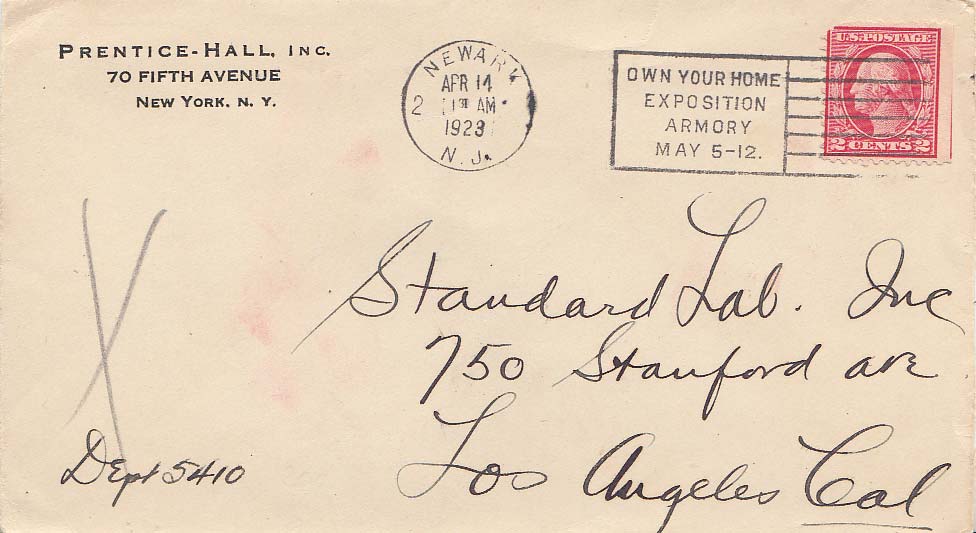 PRENTICE-HALL, INC.
70 FIFTH AVENUE
NEW YORK, N. Y.
NEWARK
APR 14
2
AM
1923
N.J.
OWN YOUR HOME
EXPOSITION
ARMORY
MAY 5-12.
U.S. POSTAGE
2 CENTS 2
Standard Lab. Inc
750 Stanford ave
Los Angeles Cal
Dept 5410